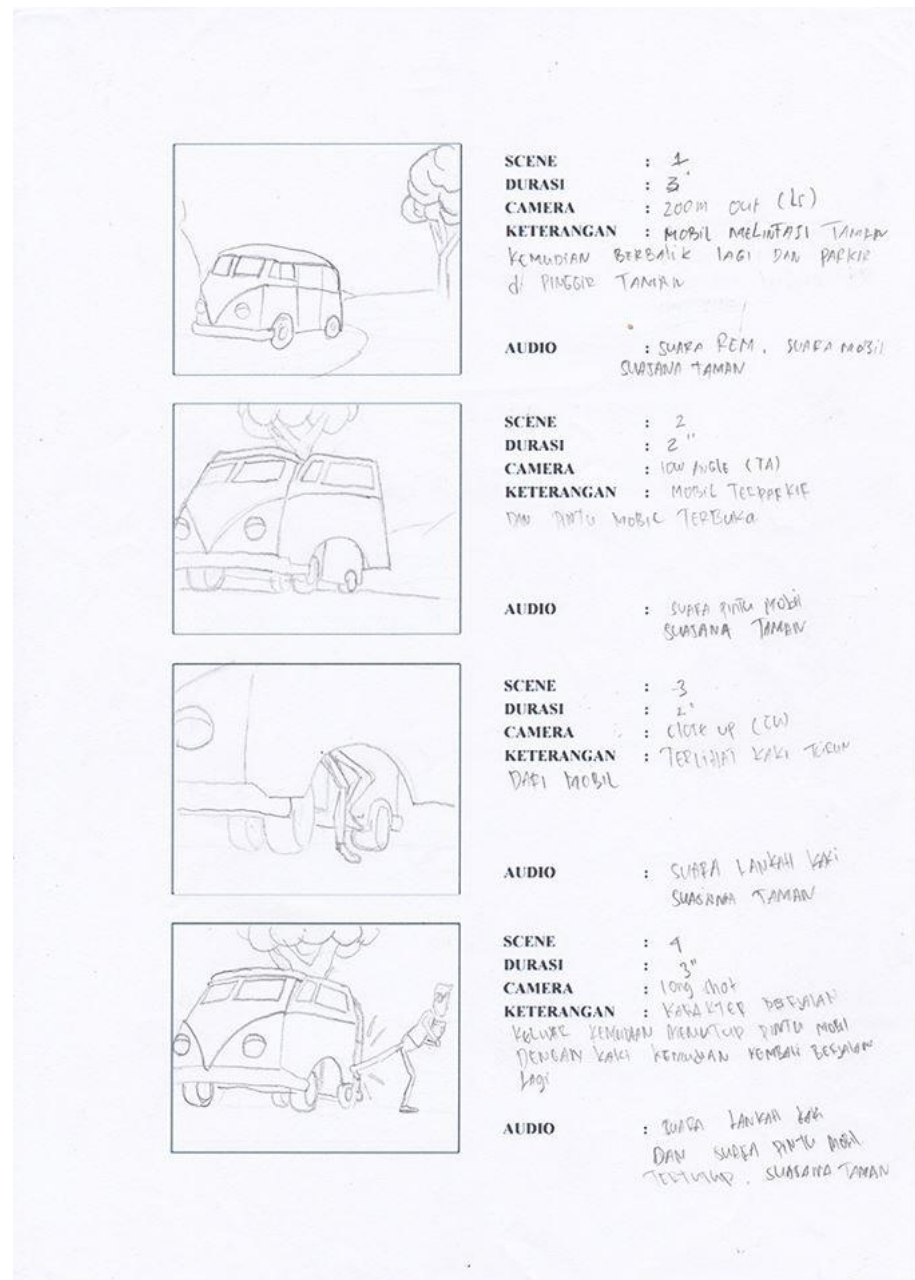 SCENE : 1
DURASI : 3"
CAMERA : ZOOM OUT (LS)
KETERANGAN : MOBIL MELINTASI TAMAN
KEMUDIAN BERBALIK LAGI DAN PARKIR
di PINGGIR TAMAN
AUDIO : SUARA REM, SUARA MOBIL
SUASANA TAMAN
SCENE : 2
DURASI : 2"
CAMERA : LOW ANGLE
KETERANGAN : MOBIL TERPARKIR
DAN PINTU MOBIL TERBUKA
AUDIO : SUARA PINTU MOBIL
SUASANA TAMAN
SCENE : 3
DURASI : 2"
CAMERA : CLOSE UP (CU)
KETERANGAN : TERLIHAT KAKI TURUN
DARI MOBIL
AUDIO : SUARA LANKAH KAKI
SUASANA TAMAN
SCENE : 4
DURASI : 3"
CAMERA : long shot
KETERANGAN : KARAKTER BERJALAN
KELUAR KEMUDIAN MENUTUP PINTU MOBIL
DENGAN KAKI KEMUDIAN KEMBALI BERJALAN
LAGI
AUDIO : SUARA LANKAH KAKI
DAN SUARA PINTU MOBIL
TERTUTUP, SUASANA TAMAN